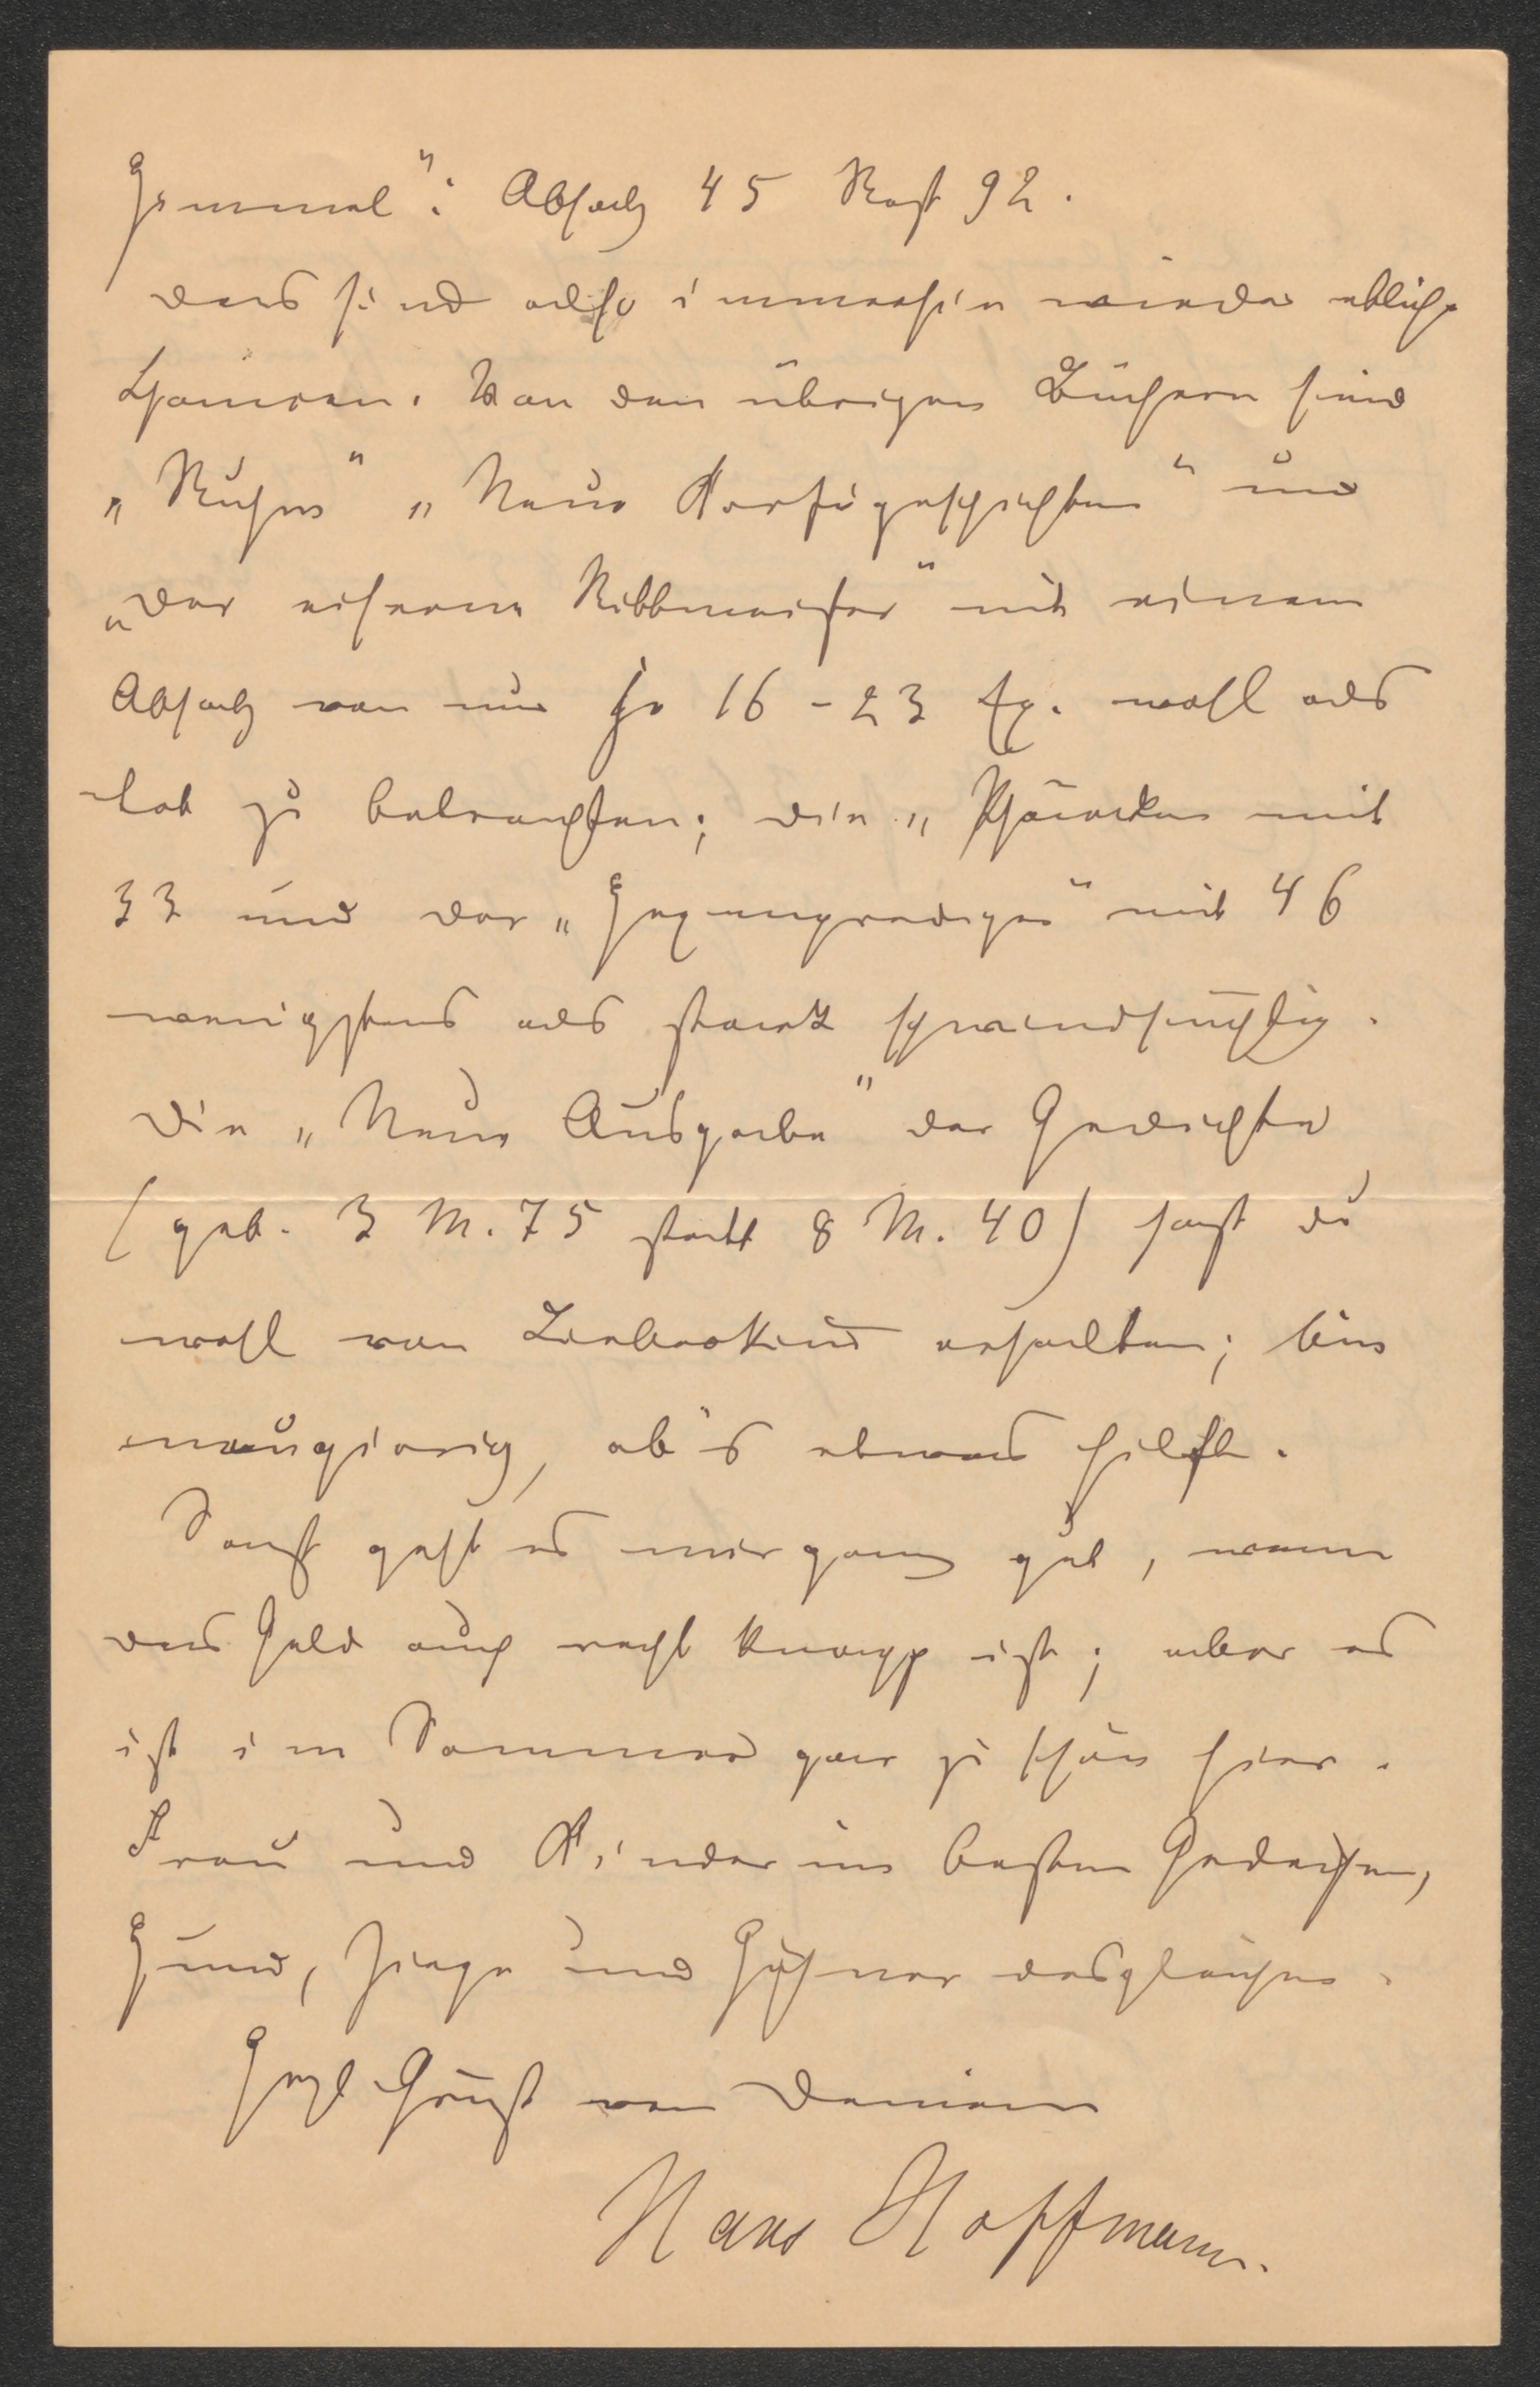 Himmel": Absatz 45 Rest 92.
das sind also immerhin wieder etliche
Von den übrigen Büchern sind
„Ruhm" „Neue Korfugeschichten" und
„der eiserne Rittmeister" mit einem
Absatz von nur je 16-23 Ex. wohl als
tot zu betrachten; die „ mit
33 und der „Hexenprediger" mit 46
wenigstens als stark schwindsüchtig.
Die „Neue Ausgabe" der Gedichte
(geb. 3 M. 75 statt 8 M. 40) hast du
wohl von Liebeskind erhalten; bin
neugierig, ob's etwas hilft.
Sonst geht es mir ganz gut, wenn
das Geld auch recht knapp ist; aber es
ist im Sommer gar zu schön hier.
Frau und Kinder im besten Gedeihen,
Hund, Ziege und Hühner desgleichen.
Herzl. Gruß von Deinem
Hans Hoffmann.